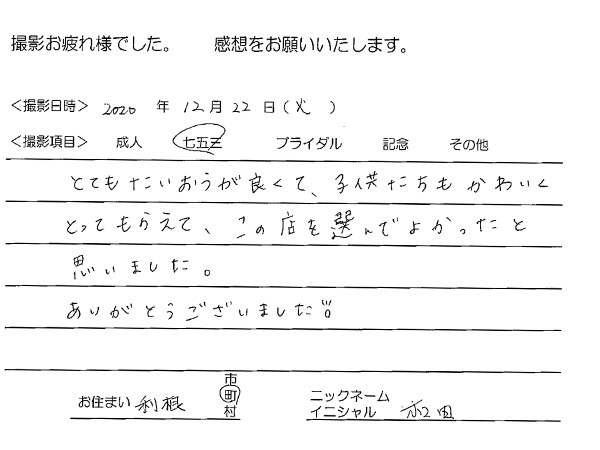 撮影お疲れ様でした。 感想をお願いいたします。
＜撮影日時＞ 2020 年 12 月 22 日(火)
＜撮影項目＞ 成人 七五三 ブライダル 記念 その他
とてもたいおうが良くて、子供たちもかわいく
とってもらえて、この店を選んでよかったと
思いました。
ありがとうございました!!
お住まい 利根 市町村
ニックネーム
イニシャル 和田